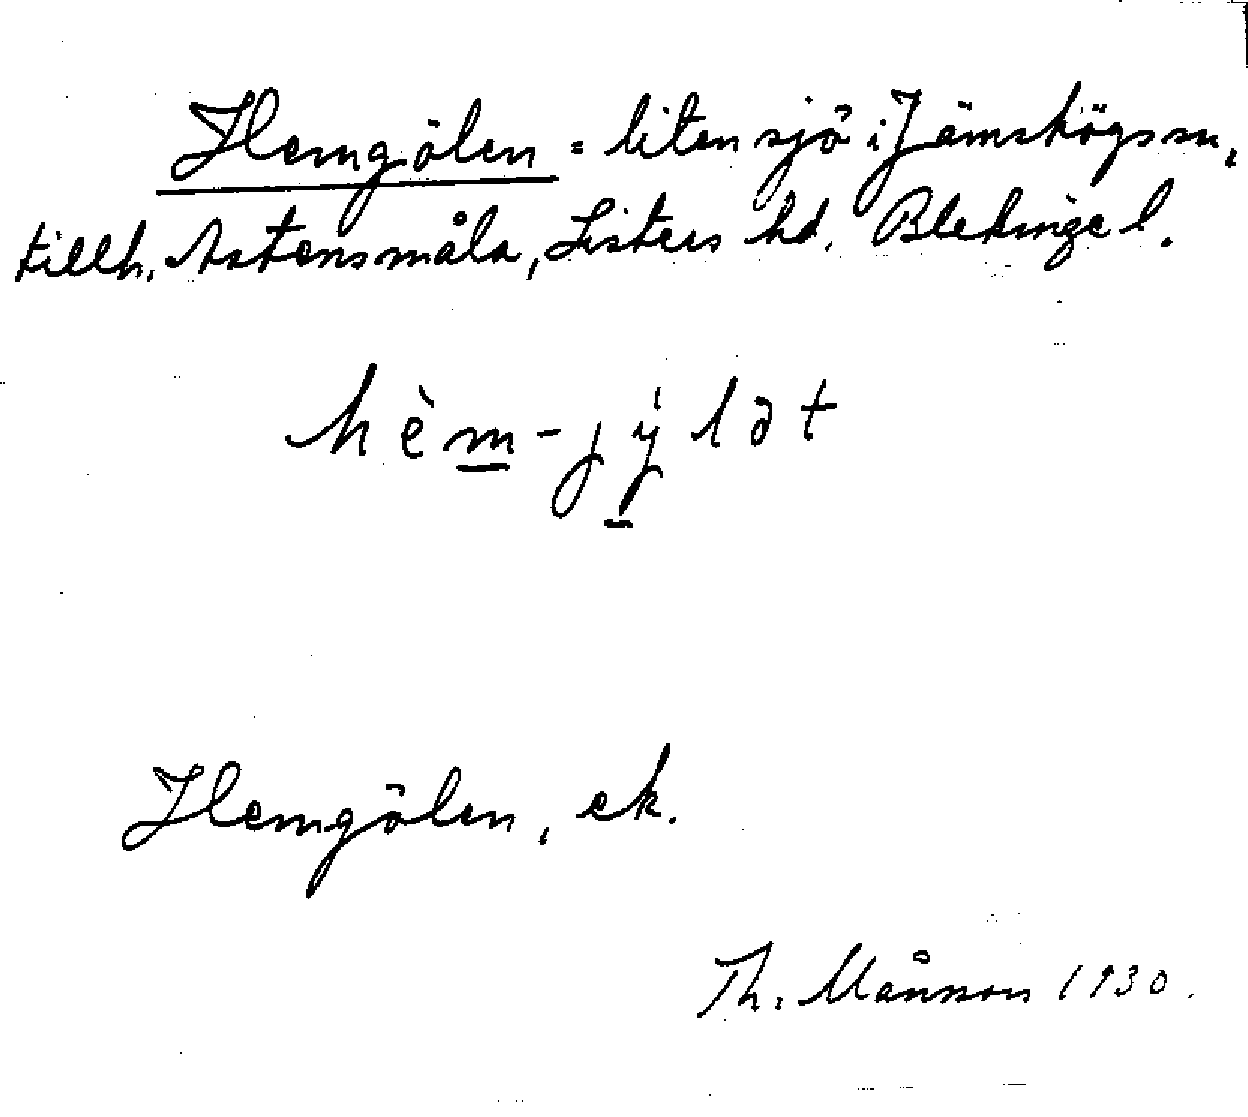 Hemgölen = liten sjö i Jämshögs sn,
tillh. Astensmåla, Listers hd. Blekinge l.
hèm-jÿlət
Hemgölen, ek.
Th. Månsson 1930.